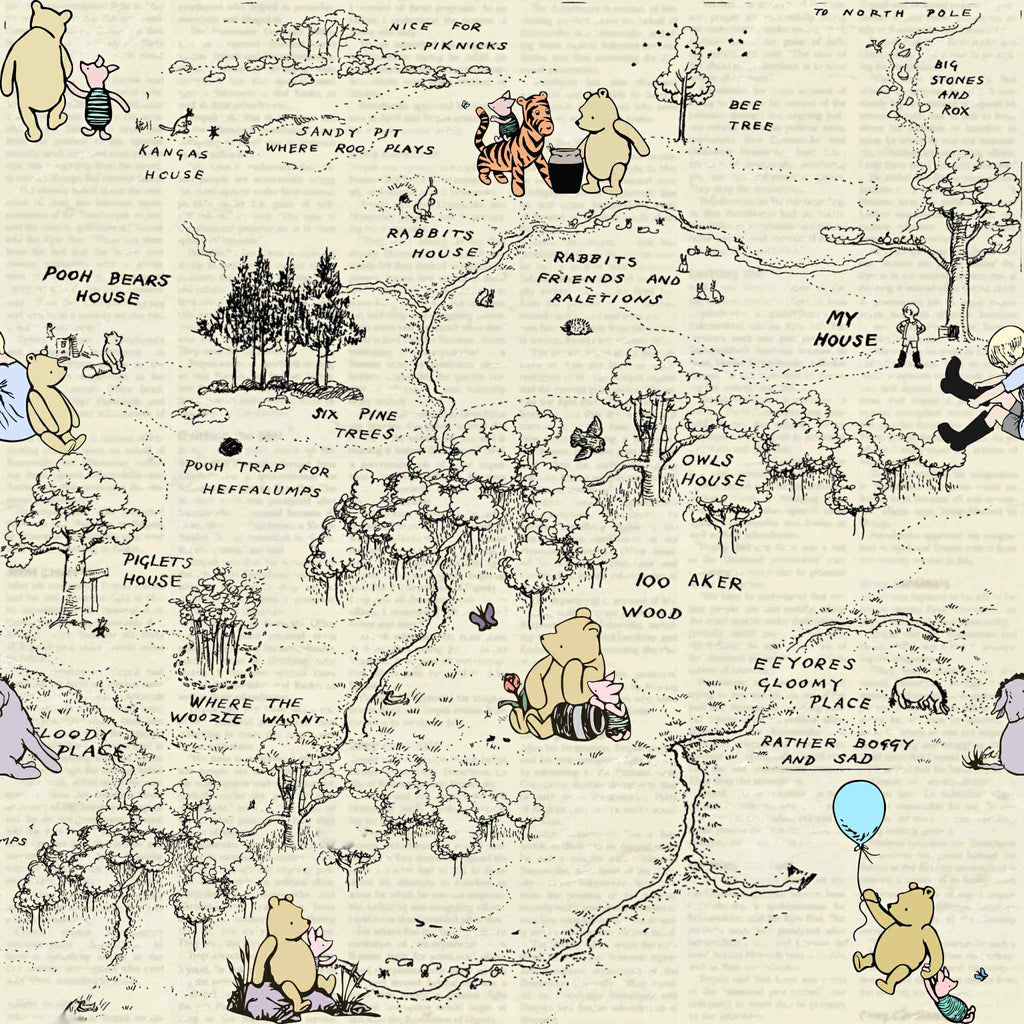 NICE FOR
PIKNICKS
TO NORTH POLE
BIG
STONES
AND
ROX
BEE
TREE
SANDY PIT
WHERE ROO PLAYS
KANGAS
HOUSE
RABBITS
HOUSE
RABBITS
FRIENDS AND
RALETIONS
POOH BEARS
HOUSE
MY
HOUSE
SIX PINE
TREES
POOH TRAP FOR
HEFFALUMPS
OWLS
HOUSE
PIGLETS
HOUSE
100 AKER
WOOD
EEYORES
GLOOMY
PLACE
WHERE THE
WOOZLE WASNT
LOODY
PLACE
RATHER BOGGY
AND SAD
MPS